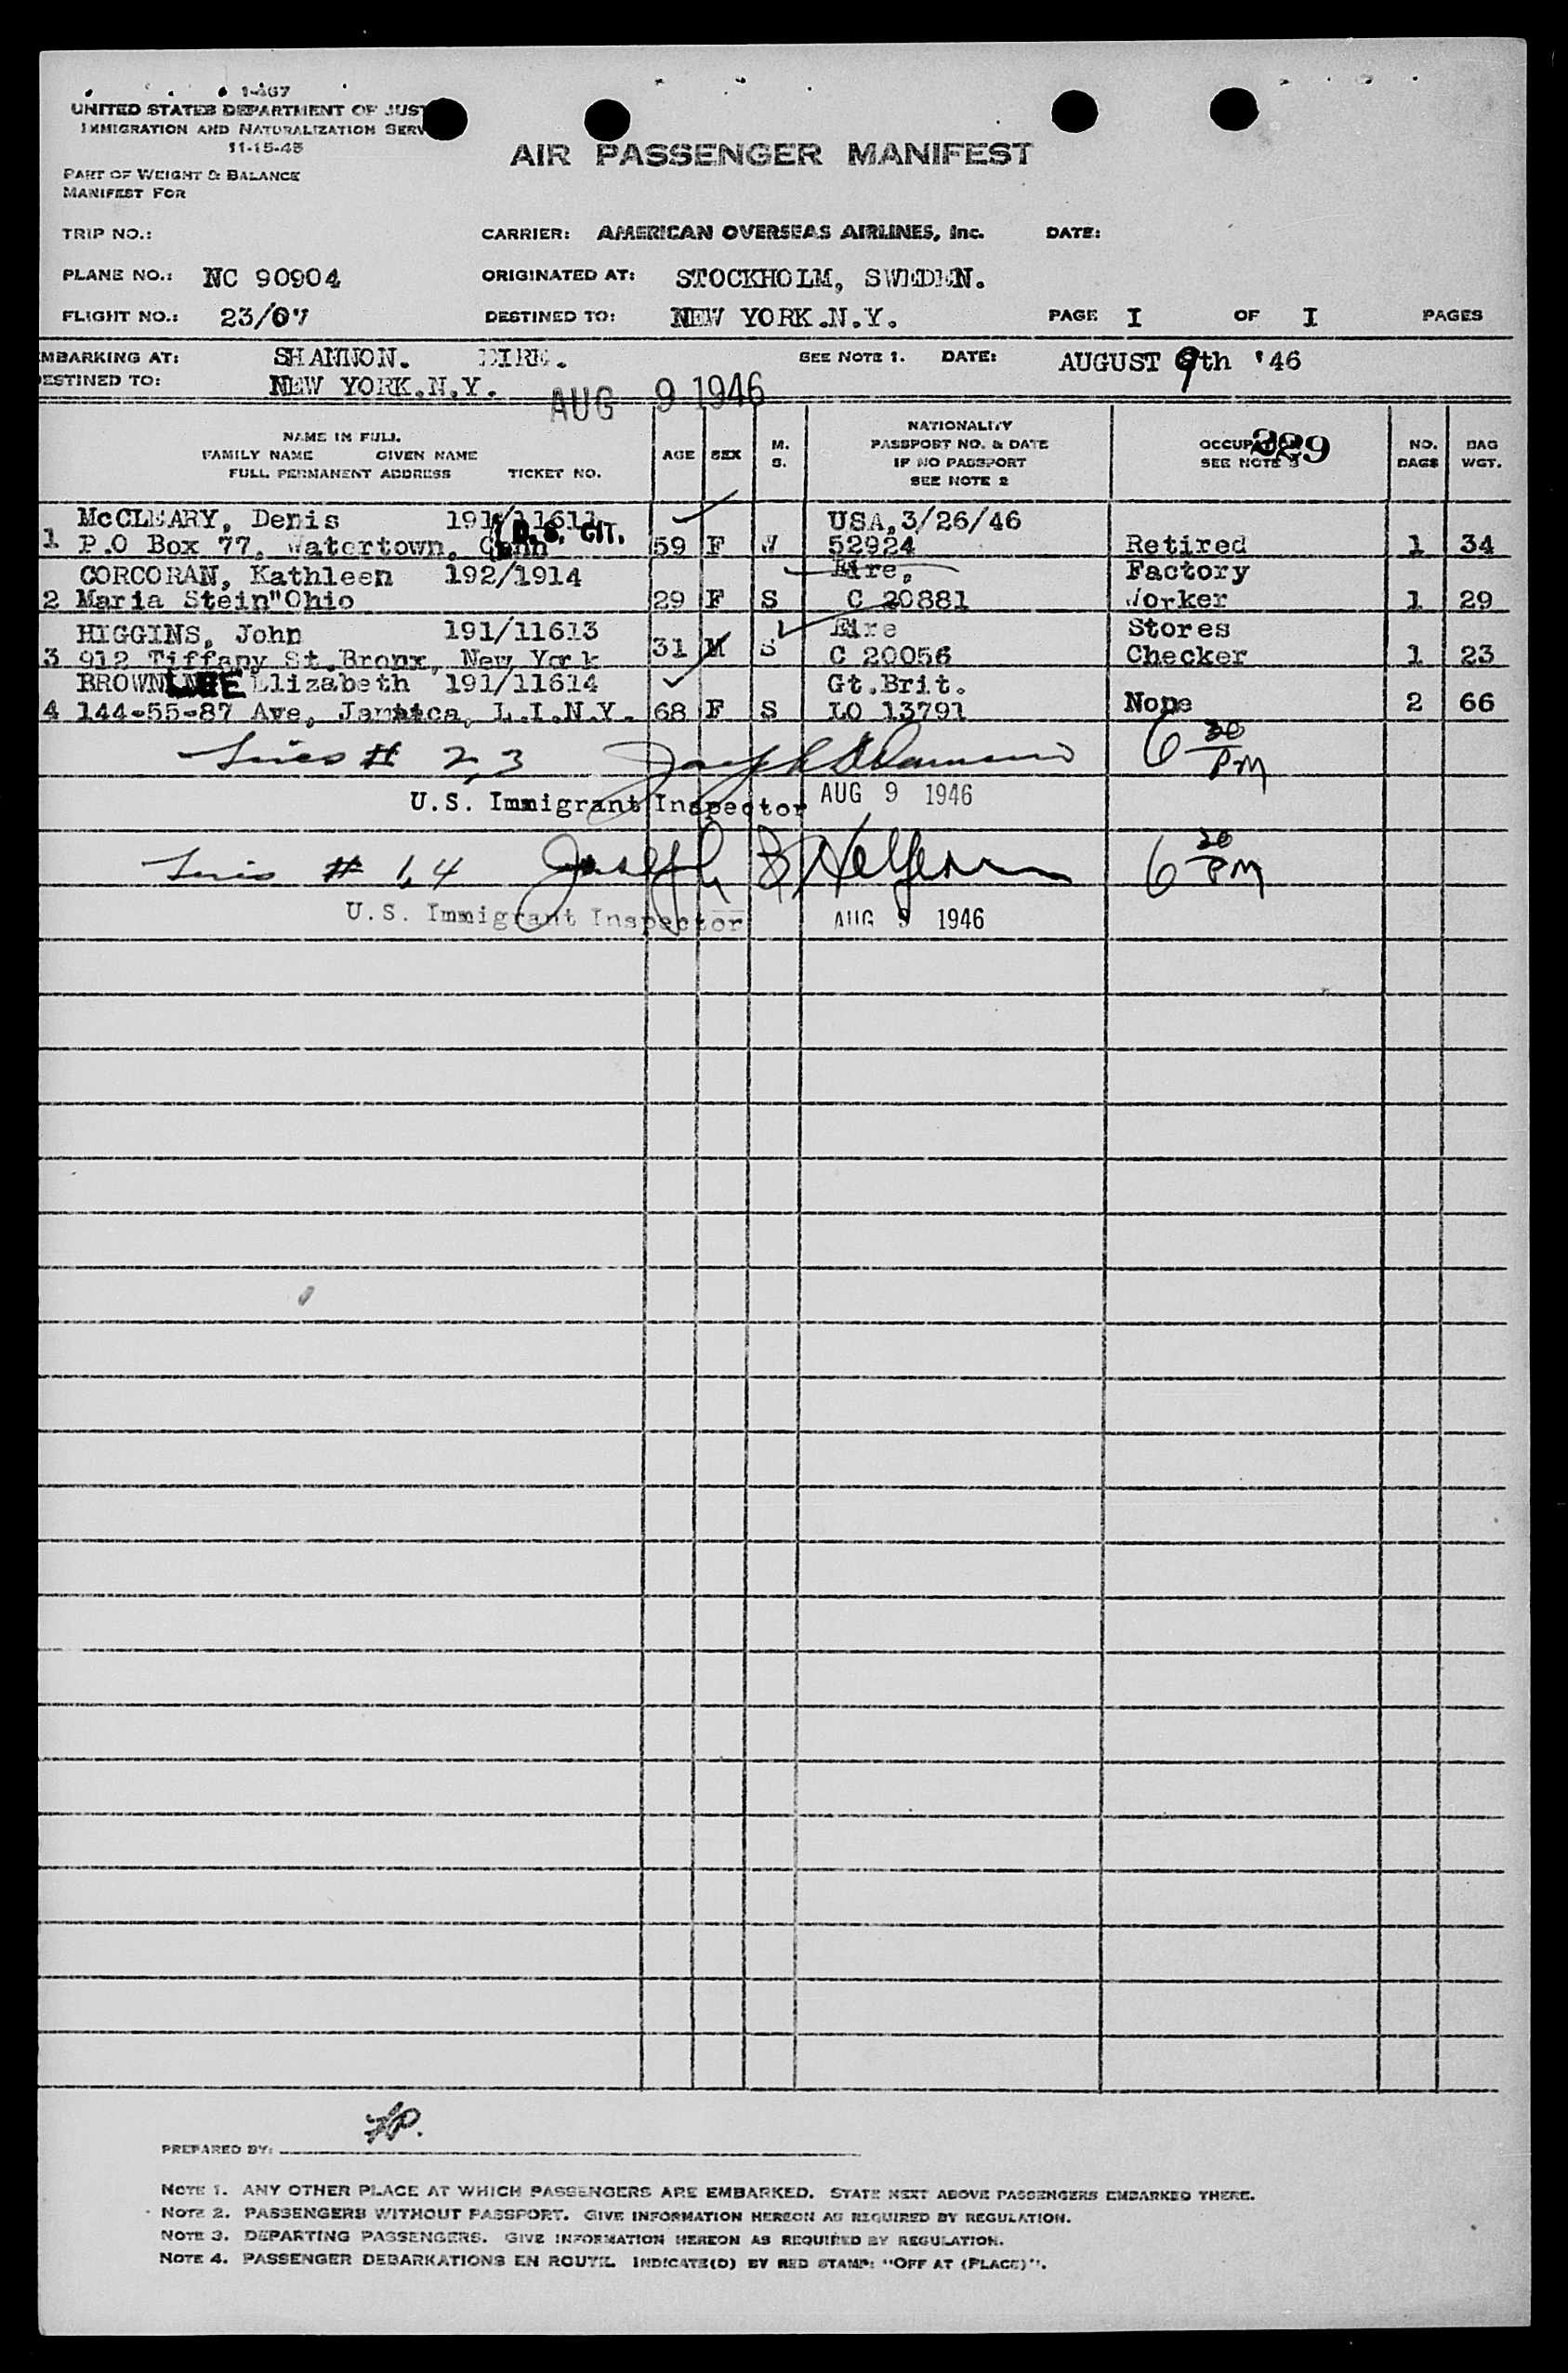 1-467
UNITED STATES DEPARTMENT OF JUST
IMMIGRATION AND NATURALIZATION SERV
11-15-45
AIR PASSENGER MANIFEST
PART OF WEIGHT & BALANCE
MANIFEST FOR
TRIP NO.: CARRIER: AMERICAN OVERSEAS AIRLINES, Inc. DATE:
PLANE NO.: NC 90904 ORIGINATED AT: STOCKHOLM, SWEDEN.
FLIGHT NO.: 23/07 DESTINED TO: NEW YORK.N.Y. PAGE I OF I PAGES
MBARKING AT: SHANNON. EIRE. SEE NOTE 1. DATE: AUGUST 9th '46
ESTINED TO: NEW YORK.N.Y.
AUG 9 1946
NAME IN FULL
FAMILY NAME GIVEN NAME
FULL PERMANENT ADDRESS TICKET NO.
AGE SEX M. S.
NATIONALITY
PASSPORT NO. & DATE
IF NO PASSPORT
SEE NOTE 2
OCCUPATION 229
SEE NOTE 3
NO. BAGS
BAG WGT.
McCLEARY, Denis 191/11611 USA,3/26/46
1 P.O Box 77, Watertown, Conn U.S. CIT. 59 F W 52924 Retired 1 34
CORCORAN, Kathleen 192/1914 Eire, Factory
2 Maria Stein"Ohio 29 F S C 20881 Worker 1 29
HIGGINS, John 191/11613 Eire Stores
3 912 Tiffany St.Bronx, New York 31 M S C 20056 Checker 1 23
BROWNLEE Elizabeth 191/11614 Gt.Brit.
4 144-55-87 Ave, Jamaica, L.I.N.Y. 68 F S LO 13791 None 2 66
Lines # 2,3 6 30 PM
U.S. Immigrant Inspector AUG 9 1946
Lines # 1,4 Joseph 6 30 PM
U.S. Immigrant Inspector AUG 9 1946
PREPARED BY:
NOTE 1. ANY OTHER PLACE AT WHICH PASSENGERS ARE EMBARKED. STATE NEXT ABOVE PASSENGERS EMBARKED THERE.
NOTE 2. PASSENGERS WITHOUT PASSPORT. GIVE INFORMATION HEREON AS REQUIRED BY REGULATION.
NOTE 3. DEPARTING PASSENGERS. GIVE INFORMATION HEREON AS REQUIRED BY REGULATION.
NOTE 4. PASSENGER DEBARKATIONS EN ROUTE. INDICATE(D) BY RED STAMP: "OFF AT (PLACE)".